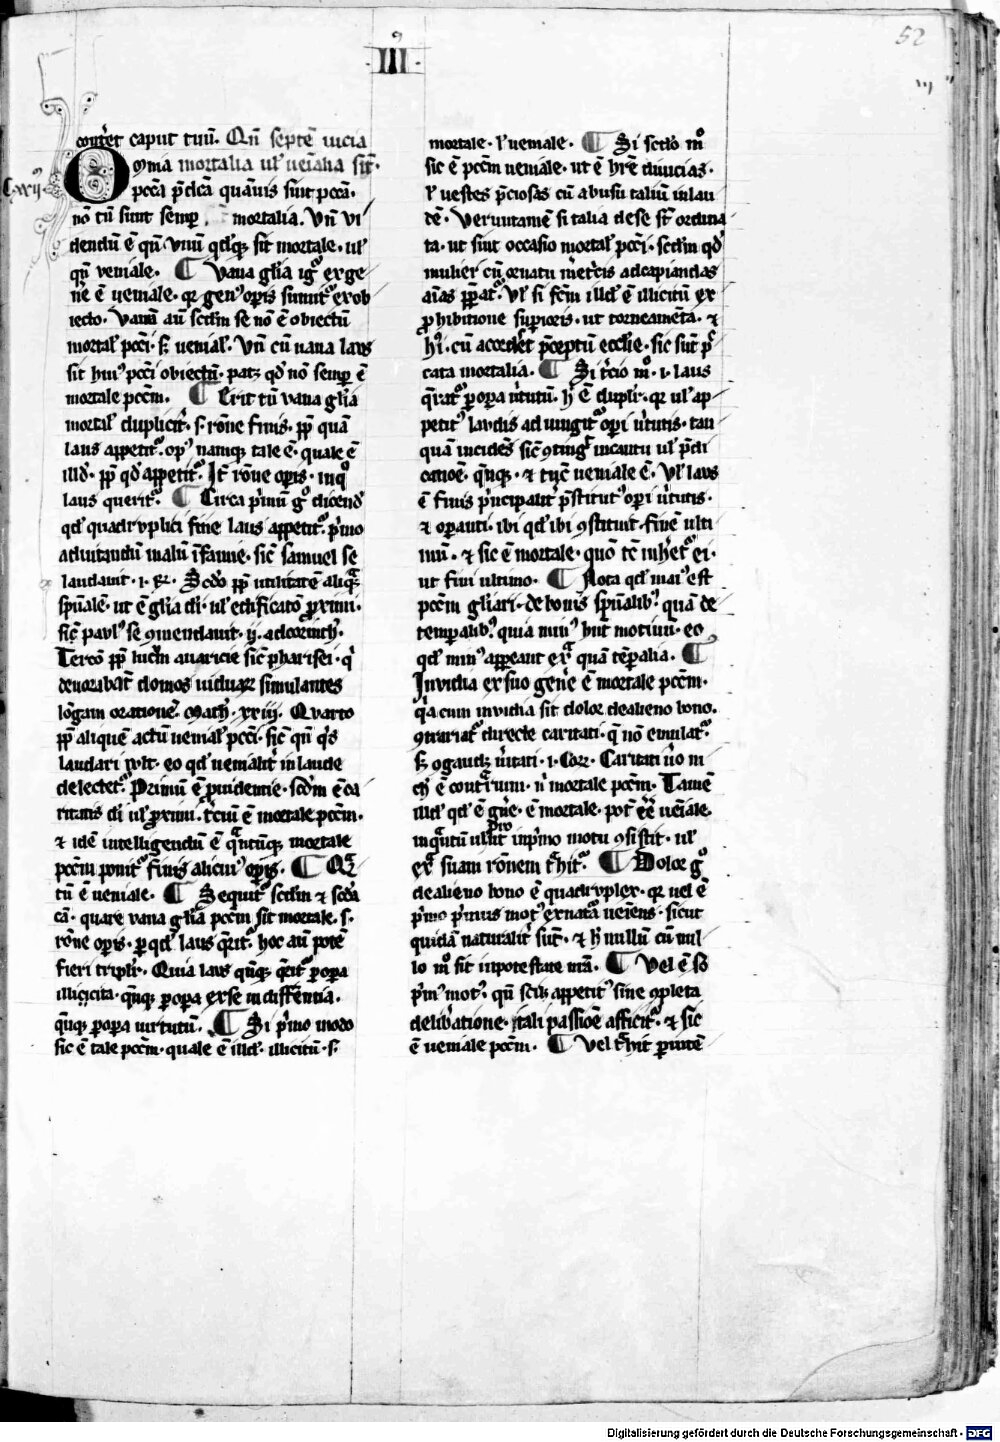 52
III
conteret caput tuū. Qn̄ septē uicia
Cxxij
Omnia mortalia ul' ueīalia sīt.
pcc̄a p̄dc̄a quāuis sint pcc̄a.
nō tn̄ sunt semp mortalia. Vn̄ vi
dendū ē qn̄ vnū qdq; sit mortale. ul'
qn̄ veniale. ¶ Vana gl'ia igͦ ex ge
ne ē ueniale. qr genꝰ opis sumitᷣ ex ob
iecto. Vana aū scd̄m se nō ē obiectū
mortal' pcc̄i. s; uenial'. Vn̄ cū uana laus
sit huiꝰ pcc̄i obiectū. patz qd nō semp ē
mortale pcc̄m. ¶ Erit tn̄ vana gl'ia
mortal' duplicit̄. s. rōne finis. pp̄ quā
laus appetitᷣ. opꝰ namq; tale ē. quale ē
illd'. pp̄ qd appetitᷣ. Jt̄ rōne opis. in qͦ
laus queritᷣ. ¶ Circa p̄mū gͦ dicend'
qd quadruplici fine laus appetitᷣ. p̄mo
ad uitandū malū īfamie. sic̄ samuel se
laudauit. i. R. Scd̄o pp̄ utilitatē aliq̄
sp̄ualē. ut ē gl'ia di. ul' edificatō proximi.
sic̄ paulꝰ se 9mendauit. ij. ad corinth.
Tercō pp̄ lucrm auaricie sic̄ pharisei. q̄
deuorabāt domos uiduarꝝ simulantes
lōgam orationē. Math. xxiij. Quarto
pp̄ aliquē actū uenial' pcc̄i. sic̄ qn̄ q̄s
laudari wlt. eo qd uenialit̄ in laude
delectetᷣ. Primū ē prudentie. scd̄m ē ca
ritatis di ul' proximi. t̄ciū ē mortale pcc̄m.
⁊ idē intelligendū ē q̄ntūq; mortale
pcc̄m ponitᷣ finis alicuiꝰ opis. ¶ Qr̄
tū ē ueniale. ¶ Sequitᷣ scd̄m ⁊ scd̄a
cā. quare vana gl'ia pcc̄m sit mortale. s.
rōne opis. p qd laus q̄ritᷣ. hoc aū potē
fieri tripl'r. Quia laus qn̄q; q̄ritᷣ p opa
illicita. qn̄q; p opa ex se indifferentia.
qn̄q; p opa uirtutū. ¶ Si p̄mo modo
sic ē tale pcc̄m. quale ē illd'. illicitū. s.
mortale. l' ueniale. ¶ Si scd̄o mͦ
sic ē pcc̄m ueniale. ut ē hr̄e diuicias.
l' uestes p̄ciosas cū abusu taliū in lau
dē. Veruntamē si talia de se st̄ ordina
ta. ut sint occasio mortal' pcc̄i. scd̄m qd
mulier cū ornatu mer̄cis ad capiendas
aīas ppatᷣ. Vl' si fc̄m illd' ē illicitū ex
prohibitione superioris. ut torneamēta. ⁊
hī. cū acorderet p̄ceptū eccl'ie. sic sūt p̄
cata mortalia. ¶ Si t̄cio mͦ. i. laus
q̄ratᷣ p opa uirtutū. h' ē dupl'r. qr ul' ap
petitꝰ laudis adiungitᷣ opi uirtutis. tan
quā incidēs sic̄ 9tingᷣ in cantu ul' p̄di
catiōe. qn̄q;. ⁊ tūc ueniale ē. Vl' laus
ē finis p̄ncipalit̄ p̄stitutꝰ opi uirtutis.
⁊ opanti. ibi qd ibi 9stituit. finē ulti
mū. ⁊ sic ē mortale. quō tc̄ inheretᷣ ei.
ut fini ultimo. ¶ Nota qd maiꝰ est
pcc̄m gl'iari. de bonis sp̄ualibꝰ. quā de
temporalibꝰ. quia minꝰ hnt motiuū. eo
qd minꝰ appeant ext̄ quā tēporalia. ¶
Inuidia ex suo gene ē mortale pcc̄m.
q̄a cum inuidia sit dolor de alieno bono.
9trariatᷣ directe caritati. q̄ nō emulatᷣ.
s; 9gaudz u̅itati. i. Cor. Caritati uͦ ni
ch' ē contrium. nͥ mortale pcc̄m. Tamē
illd' qd ē gn̄e. ē mortale. pot eē ueīale.
inq̄ntū ul' sit in p̄mo motu 9sistit. ul'
ext̄ suam rōnem t̄hitᷣ. ¶ Dolor gͦ
de alieno bono ē quadruplex. qr uel ē
p̄mo p̄mus motꝰ ex nata ueīens. sicut
quidā naturalit̄ sūt. ⁊ h' nullū cū nul
lo mͦ sit in potestate nr̄a. ¶ Vel ē scd̄o
p̄mꝰ motꝰ. qn̄ scilz appetitꝰ sine 9pleta
delibatione. tali passiōe afficitᷣ. ⁊ sic
ē ueniale pcc̄m. ¶ Vel t̄hit puntē
Digitalisierung gefördert durch die Deutsche Forschungsgemeinschaft - DFG